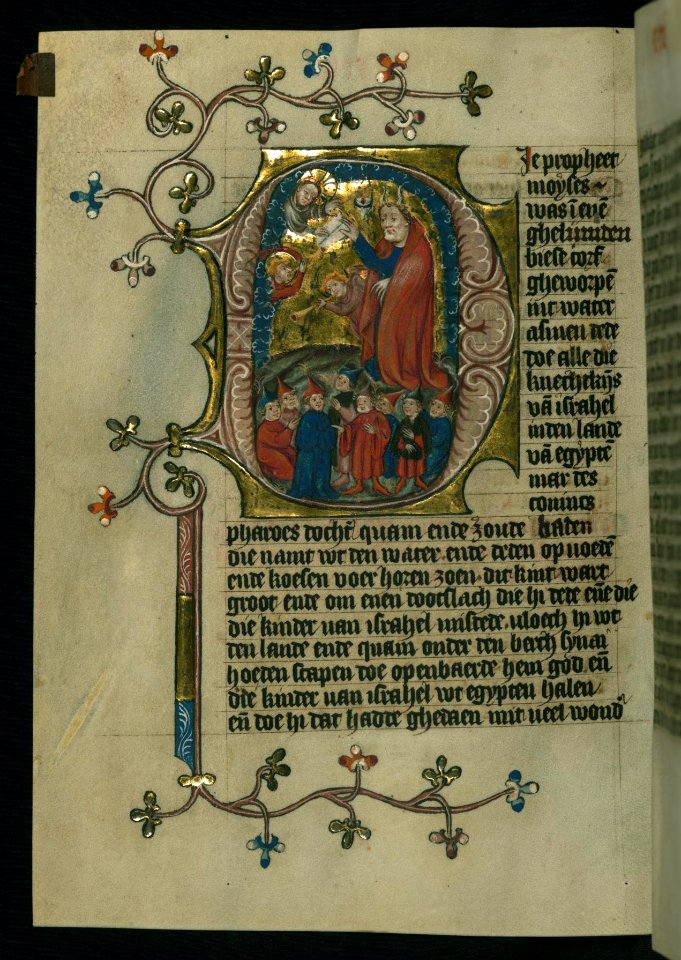 Je propheet
moyses
was ī evē
ghebonden
biese corf
gheworpē
int water
doe alle die
knechtkijs
vā israhel
inden lande
vā egyptē
mar des
conincs
pharoes docht' quam ende zoude baden
die namt wt den water ende deden op voedē
ende koesen voer horen zoen dit kint wart
groot ende om enen dootslach die hi dede eñ die
die kinder van israhel misdede vloech hi wt
den lande ende quam onder den berch synai
hoeden scapen doe openbaerde hem god eñ
die kinder van israhel wt egypten halen
eñ doe hi dat hadde ghedaen mit veel wond'